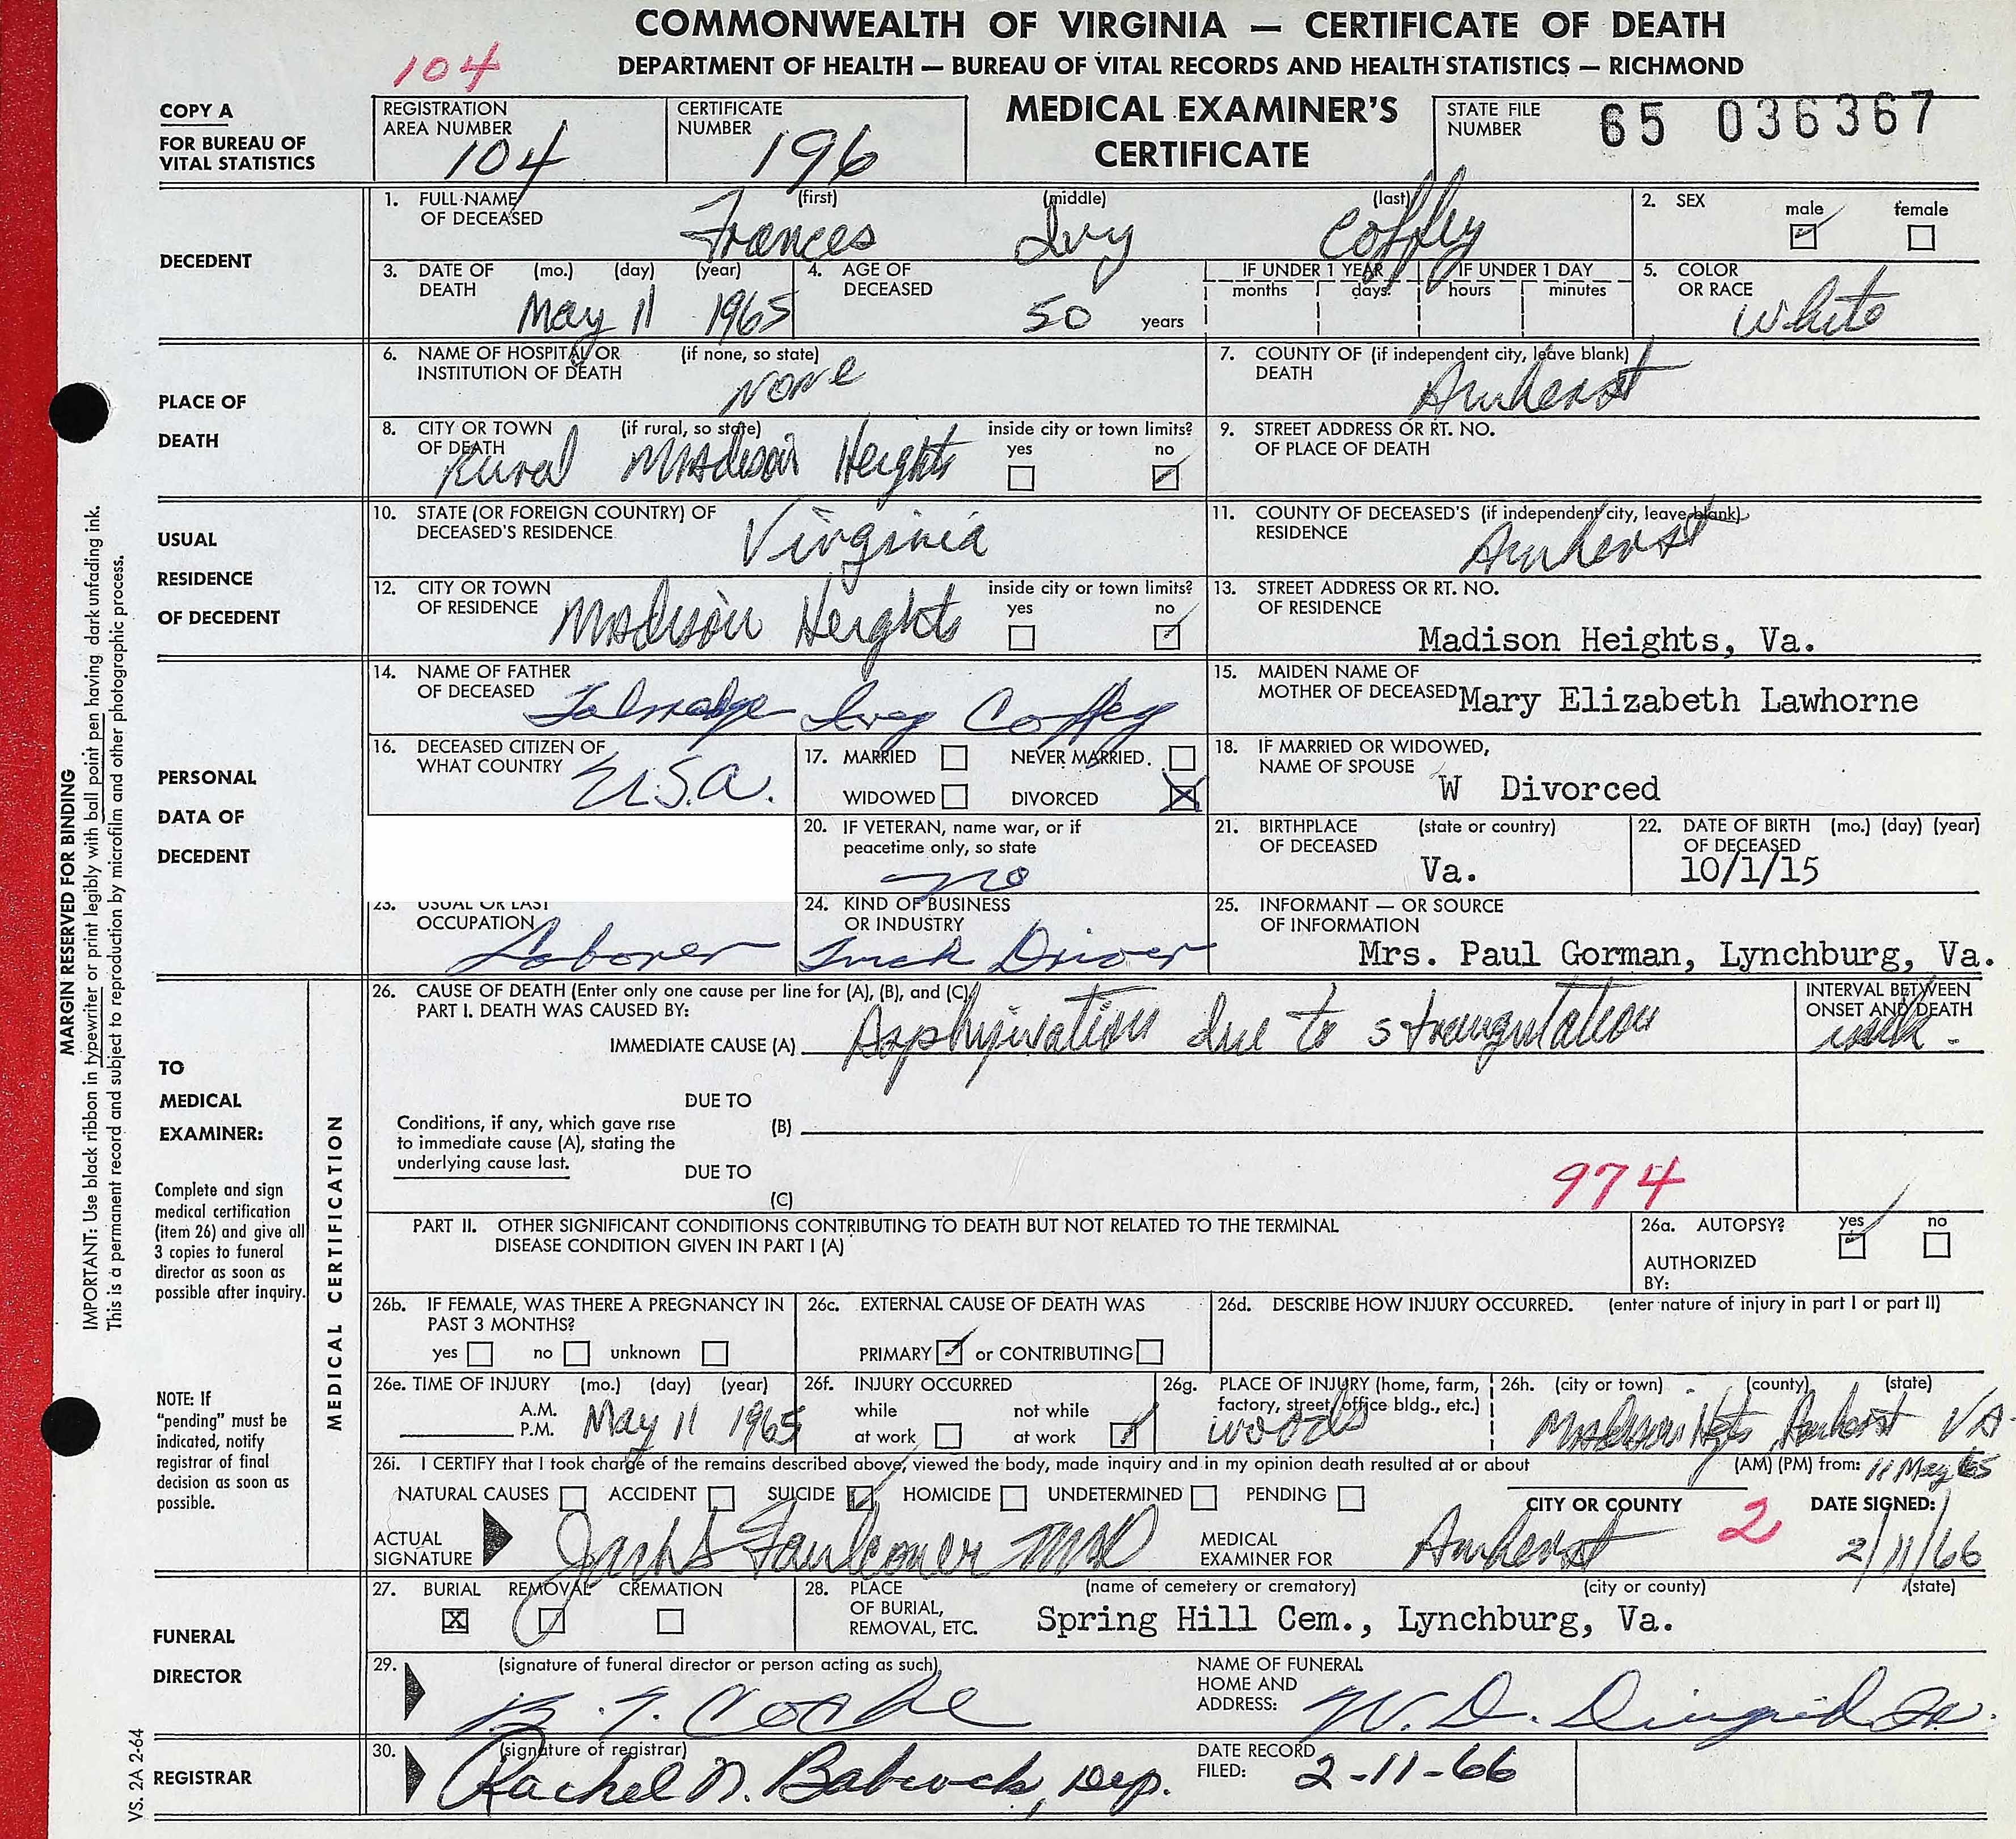 COMMONWEALTH OF VIRGINIA — CERTIFICATE OF DEATH
DEPARTMENT OF HEALTH — BUREAU OF VITAL RECORDS AND HEALTH STATISTICS — RICHMOND
104
COPY A
FOR BUREAU OF
VITAL STATISTICS
REGISTRATION
AREA NUMBER
104
CERTIFICATE
NUMBER
196
MEDICAL EXAMINER'S
CERTIFICATE
STATE FILE
NUMBER
65 036367
DECEDENT
1. FULL NAME (first) (middle) (last)
OF DECEASED
Frances Ivy Coffey
2. SEX
male female
3. DATE OF (mo.) (day) (year)
DEATH
May 11 1965
4. AGE OF
DECEASED
50 years
IF UNDER 1 YEAR IF UNDER 1 DAY
months days hours minutes
5. COLOR
OR RACE
White
PLACE OF
DEATH
6. NAME OF HOSPITAL OR (if none, so state)
INSTITUTION OF DEATH
None
7. COUNTY OF (if independent city, leave blank)
DEATH
Amherst
8. CITY OR TOWN (if rural, so state) inside city or town limits?
OF DEATH yes no
Rural Madison Heights
9. STREET ADDRESS OR RT. NO.
OF PLACE OF DEATH
USUAL
RESIDENCE
OF DECEDENT
10. STATE (OR FOREIGN COUNTRY) OF
DECEASED'S RESIDENCE
Virginia
11. COUNTY OF DECEASED'S (if independent city, leave blank)
RESIDENCE
Amherst
12. CITY OR TOWN inside city or town limits?
OF RESIDENCE yes no
Madison Heights
13. STREET ADDRESS OR RT. NO.
OF RESIDENCE
Madison Heights, Va.
PERSONAL
DATA OF
DECEDENT
14. NAME OF FATHER
OF DECEASED
Talmadge Ivey Coffey
15. MAIDEN NAME OF
MOTHER OF DECEASED
Mary Elizabeth Lawhorne
16. DECEASED CITIZEN OF
WHAT COUNTRY
U.S.A.
17. MARRIED NEVER MARRIED
WIDOWED DIVORCED
18. IF MARRIED OR WIDOWED,
NAME OF SPOUSE
W Divorced
20. IF VETERAN, name war, or if
peacetime only, so state
no
21. BIRTHPLACE (state or country)
OF DECEASED
Va.
22. DATE OF BIRTH (mo.) (day) (year)
OF DECEASED
10/1/15
23. USUAL OR LAST
OCCUPATION
Laborer
24. KIND OF BUSINESS
OR INDUSTRY
Truck Driver
25. INFORMANT — OR SOURCE
OF INFORMATION
Mrs. Paul Gorman, Lynchburg, Va.
TO
MEDICAL
EXAMINER:
Complete and sign
medical certification
(item 26) and give all
3 copies to funeral
director as soon as
possible after inquiry.
NOTE: If
"pending" must be
indicated, notify
registrar of final
decision as soon as
possible.
MEDICAL CERTIFICATION
26. CAUSE OF DEATH (Enter only one cause per line for (A), (B), and (C)
PART I. DEATH WAS CAUSED BY:
IMMEDIATE CAUSE (A)
Asphyxiation due to strangulation
INTERVAL BETWEEN
ONSET AND DEATH
DUE TO
Conditions, if any, which gave rise
to immediate cause (A), stating the
underlying cause last.
(B)
DUE TO
(C)
974
PART II. OTHER SIGNIFICANT CONDITIONS CONTRIBUTING TO DEATH BUT NOT RELATED TO THE TERMINAL
DISEASE CONDITION GIVEN IN PART I (A)
26a. AUTOPSY? yes no
AUTHORIZED
BY:
26b. IF FEMALE, WAS THERE A PREGNANCY IN
PAST 3 MONTHS?
yes no unknown
26c. EXTERNAL CAUSE OF DEATH WAS
PRIMARY or CONTRIBUTING
26d. DESCRIBE HOW INJURY OCCURRED. (enter nature of injury in part I or part II)
26e. TIME OF INJURY (mo.) (day) (year)
A.M.
P.M.
May 11 1965
26f. INJURY OCCURRED
while not while
at work at work
26g. PLACE OF INJURY (home, farm,
factory, street, office bldg., etc.)
woods
26h. (city or town) (county) (state)
Madison Hgts Amherst VA
26i. I CERTIFY that I took charge of the remains described above, viewed the body, made inquiry and in my opinion death resulted at or about (AM) (PM) from: 11 May 65
NATURAL CAUSES ACCIDENT SUICIDE HOMICIDE UNDETERMINED PENDING
CITY OR COUNTY
2
DATE SIGNED:
ACTUAL
SIGNATURE
Jack S Faulconer MD
MEDICAL
EXAMINER FOR
Amherst
2/11/66
FUNERAL
DIRECTOR
27. BURIAL REMOVAL CREMATION
X
28. PLACE (name of cemetery or crematory) (city or county) (state)
OF BURIAL,
REMOVAL, ETC.
Spring Hill Cem., Lynchburg, Va.
29. (signature of funeral director or person acting as such)
NAME OF FUNERAL
HOME AND
ADDRESS:
W. D.
REGISTRAR
30. (signature of registrar)
Rachel N. Babcock, Dep.
DATE RECORD
FILED:
2-11-66
MARGIN RESERVED FOR BINDING
IMPORTANT: Use black ribbon in typewriter or print legibly with ball point pen having dark unfading ink.
This is a permanent record and subject to reproduction by microfilm and other photographic process.
VS. 2A 2-64